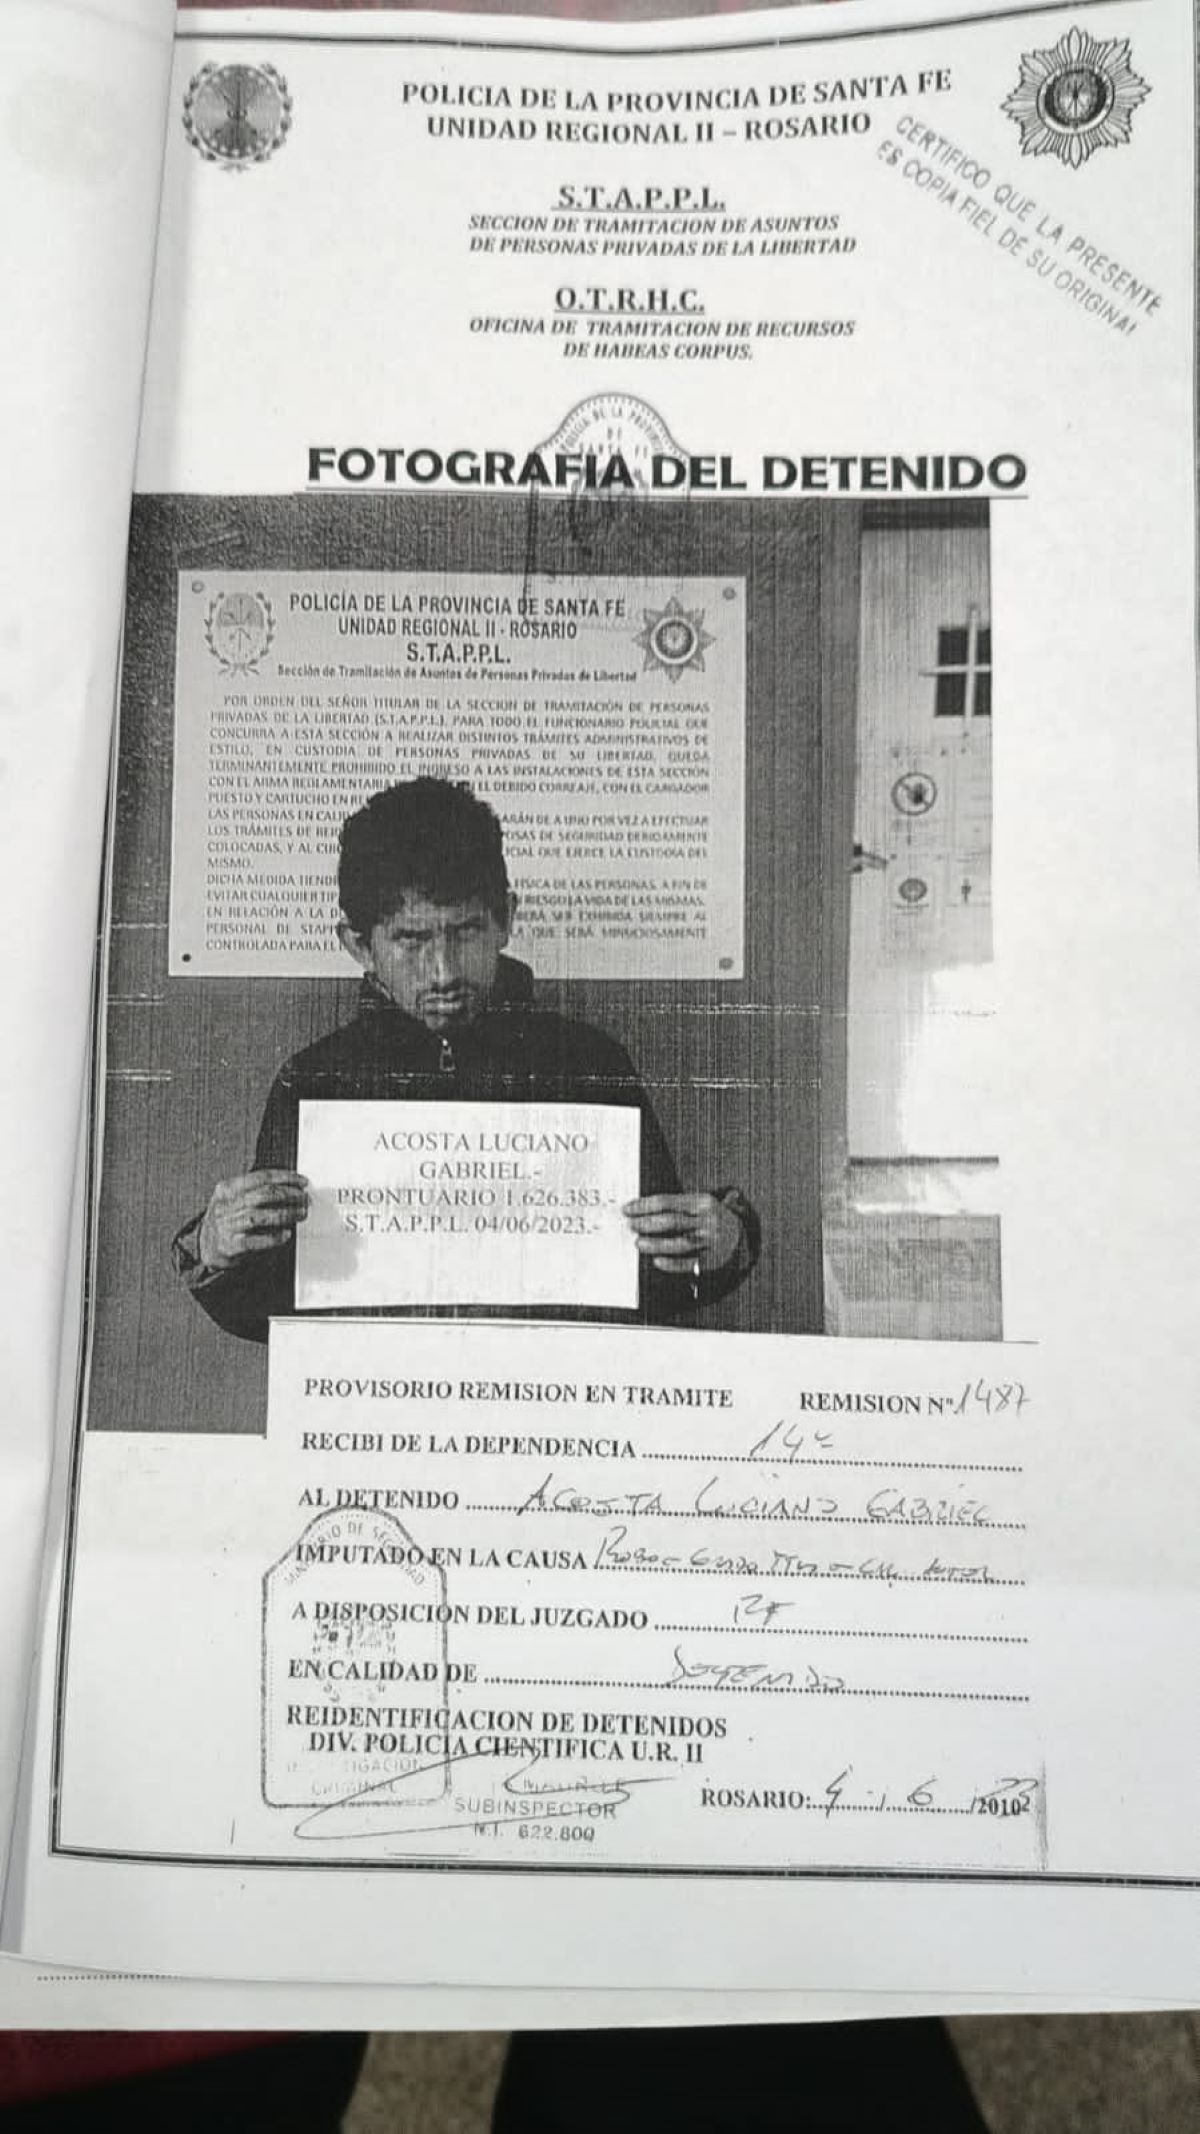 POLICIA DE LA PROVINCIA DE SANTA FE
UNIDAD REGIONAL II – ROSARIO
CERTIFICO QUE LA PRESENTE
ES COPIA FIEL DE SU ORIGINAL
S.T.A.P.P.L.
SECCION DE TRAMITACION DE ASUNTOS
DE PERSONAS PRIVADAS DE LA LIBERTAD
O.T.R.H.C.
OFICINA DE TRAMITACION DE RECURSOS
DE HABEAS CORPUS.
POLICIA DE LA PROVINCIA
DE
SANTA FE
FOTOGRAFIA DEL DETENIDO
POLICÍA DE LA PROVINCIA DE SANTA FE
UNIDAD REGIONAL II - ROSARIO
S.T.A.P.P.L.
Sección de Tramitación de Asuntos de Personas Privadas de Libertad
POR ORDEN DEL SEÑOR TITULAR DE LA SECCIÓN DE TRAMITACIÓN DE PERSONAS
PRIVADAS DE LA LIBERTAD (S.T.A.P.P.L.), PARA TODO EL FUNCIONARIO POLICIAL QUE
CONCURRA A ESTA SECCIÓN A REALIZAR DISTINTOS TRÁMITES ADMINISTRATIVOS DE
ESTILO, EN CUSTODIA DE PERSONAS PRIVADAS DE SU LIBERTAD, QUEDA
TERMINANTEMENTE PROHIBIDO EL INGRESO A LAS INSTALACIONES DE ESTA SECCIÓN
CON EL ARMA REGLAMENTARIA EL DEBIDO CORREAJE, CON EL CARGADOR
PUESTO Y CARTUCHO EN
LAS PERSONAS EN DE A UNO POR VEZ A EFECTUAR
LOS TRÁMITES DE DE SEGURIDAD DEBIDAMENTE
COLOCADAS, Y AL QUE EJERCE LA CUSTODIA DEL
MISMO.
DICHA MEDIDA FÍSICA DE LAS PERSONAS, A FIN DE
EVITAR CUALQUIER RIESGO LA VIDA DE LAS MISMAS.
EN RELACIÓN A LA SER EXHIBIDA SIEMPRE AL
PERSONAL DE LA QUE SERÁ MINUCIOSAMENTE
CONTROLADA PARA EL
ACOSTA LUCIANO
GABRIEL.-
PRONTUARIO 1.626.383.-
S.T.A.P.P.L. 04/06/2023.-
PROVISORIO REMISION EN TRAMITE REMISION Nº 1487
RECIBI DE LA DEPENDENCIA 14º
AL DETENIDO ACOSTA LUCIANO GABRIEL
IMPUTADO EN LA CAUSA Robo
A DISPOSICION DEL JUZGADO
EN CALIDAD DE DETENIDO
REIDENTIFICACION DE DETENIDOS
DIV. POLICIA CIENTIFICA U.R. II
SUBINSPECTOR
N.I. 622.800
ROSARIO: 4 / 6 /2010